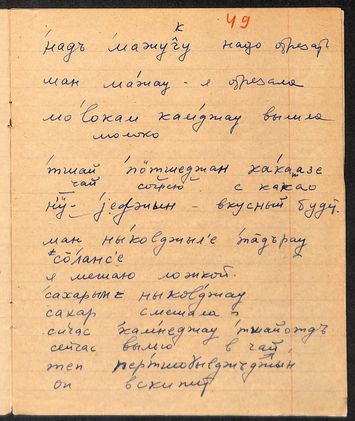 49
надъ мажуг̂у надо отрезать
ман ма́жау - я отрезала
мо́локам кан́джау вылила
молоко
тшай по̄тшеджан ка́ка̄азе
чай согрею с какао
нӱ - је̄джын - вкусный будт.
ман ны́ковджыл'е та̄дърау
со̄ланс'е
я мешаю ложкой.
сахарым ныко́вджау
сахар смешала
сичас камнеджау тшайотдъ
сейчас вылью в чай
теп
он вскипит